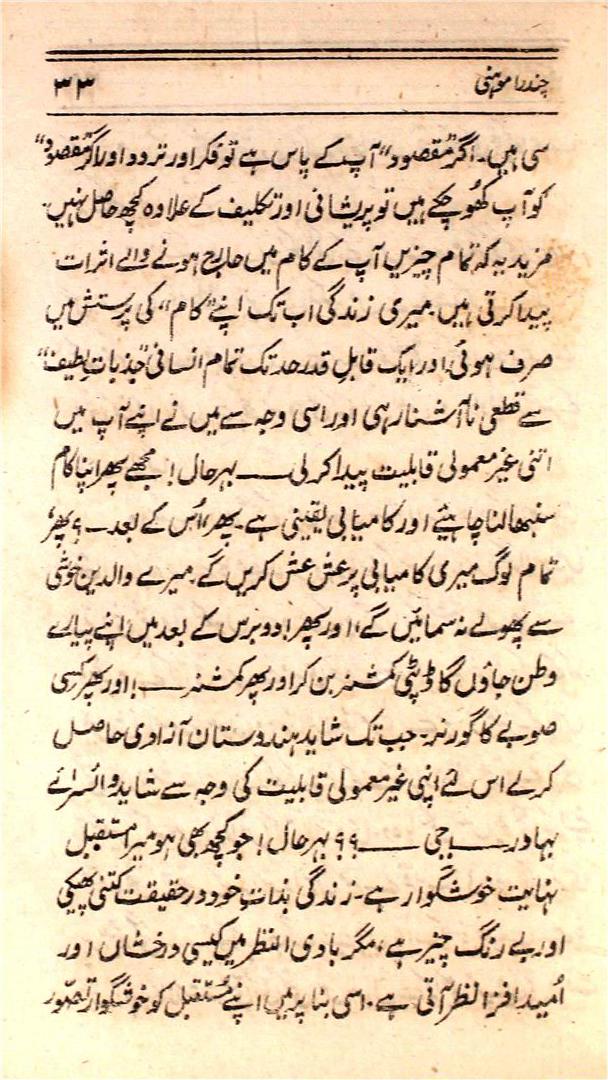 چندرا موہنی ۳۳
سی ہیں۔ اگر ”مقصود“ آپ کے پاس ہے تو فکر اور تردد اور اگر ”مقصود“
کو آپ کھو چکے ہیں تو پریشانی اور تکلیف کے علاوہ کچھ حاصل نہیں۔
مزید یہ کہ تمام چیزیں آپ کے کام میں حارج ہونے والے اثرات
پیدا کرتی ہیں۔ میری زندگی اب تک اپنے ”کام“ کی پرستش میں
صرف ہوئی اور ایک قابلِ قدر حد تک تمام انسانی ”جذباتِ لطیف“
سے قطعی نا آشنا رہی اور اسی وجہ سے میں نے اپنے آپ میں
اتنی غیر معمولی قابلیت پیدا کر لی —— بہر حال! مجھے پھر اپنا کام
سنبھالنا چاہیئے اور کامیابی یقینی ہے۔ پھر، اُس کے بعد —؟ پھر،
تمام لوگ میری کامیابی پر عش عش کریں گے۔ میرے والدین خوشی
سے پھولے نہ سمائیں گے، اور پھر! دو برس کے بعد میں اپنے پیارے
وطن جاؤں گا ڈپٹی کمشنر بن کر اور پھر کمشنر ——! اور پھر کسی
صوبے کا گورنر۔ جب تک شاید ہندوستان آزادی حاصل
کر لے اس لئے اپنی غیر معمولی قابلیت کی وجہ سے شاید وائسرائے
بہادر —— جی ——؟؟ بہر حال! جو کچھ بھی ہو میرا مستقبل
نہایت خوشگوار ہے۔ زندگی بذاتِ خود در حقیقت کتنی پھیکی
اور بے رنگ چیز ہے، مگر بادی النظر میں کیسی درخشاں اور
اُمید افزا نظر آتی ہے۔ اسی بنا پر میں اپنے مُستقبل کو خوشگوار تصوّر